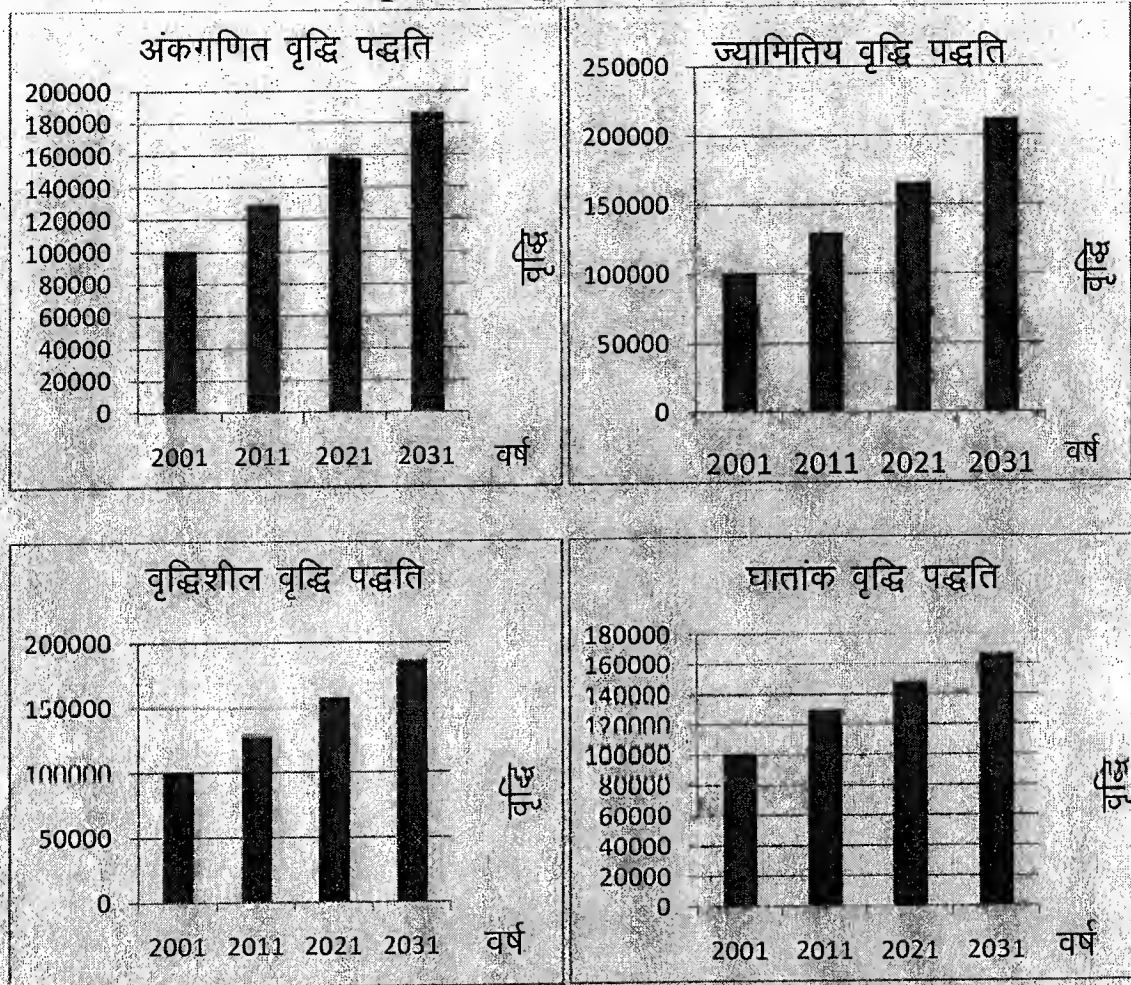 अंकगणित वृद्धि पद्धति
200000
180000
160000
140000
120000
100000
80000
60000
40000
20000
0
2001 2011 2021 2031 वर्ष
वृद्धि
ज्यामितिय वृद्धि पद्धति
250000
200000
150000
100000
50000
0
2001 2011 2021 2031 वर्ष
वृद्धि
वृद्धिशील वृद्धि पद्धति
200000
150000
100000
50000
0
2001 2011 2021 2031 वर्ष
वृद्धि
घातांक वृद्धि पद्धति
180000
160000
140000
120000
100000
80000
60000
40000
20000
0
2001 2011 2021 2031 वर्ष
वृद्धि